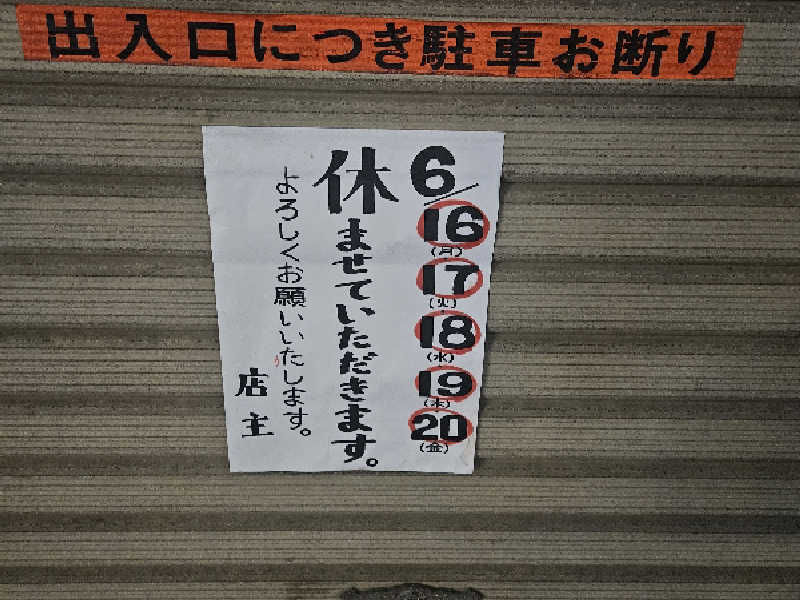 出入口につき駐車お断り
6/16(月)
17(火)
18(水)
19(木)
20(金)
休ませていただきます。
よろしくお願いいたします。
店主